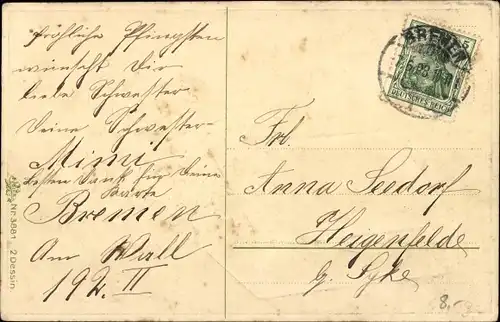 Fröhliche Pfingsten
wünscht Dir
liebe Schwester
Deine Schwester
Mimi
besten Dank für Deine
Karte
Bremen
Am Wall
192. II
Frl.
Anna Seedorf
Heigenfelde
b. Syke
BREMEN
5
DEUTSCHES REICH
Nr. 3681 2 Dessin.
8,-